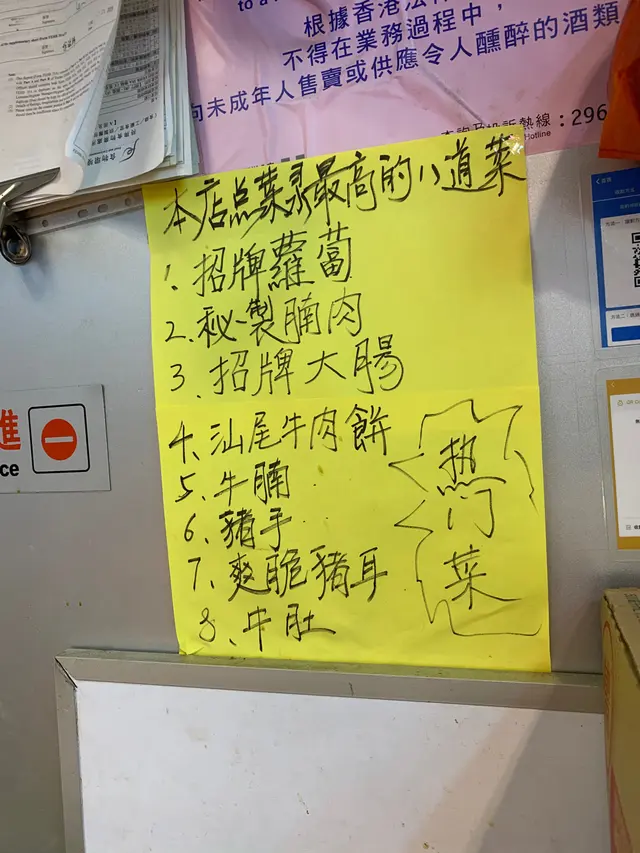 根據香港法
不得在業務過程中，
向未成年人售賣或供應令人醺醉的酒類
熱線：296
Hotline
本店点菜录最高的八道菜
1、招牌蘿蔔
2、秘製腩肉
3、招牌大腸
4、汕尾牛肉餅
5、牛腩
6、豬手
7、爽脆豬耳
8、牛肚
热门菜
進
ce